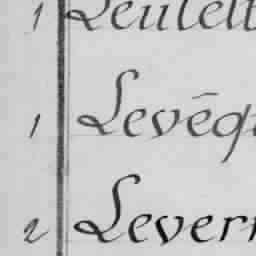 1 Leulett
1 Levêq
2 Levern